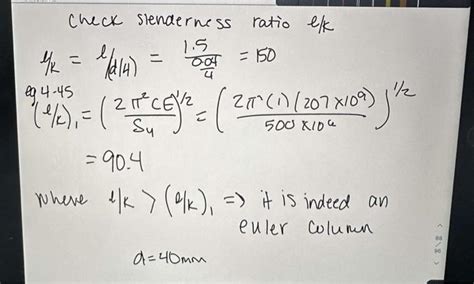 Check slenderness ratio l/k
l/k = l/(d/4) = 1.5/(0.04/4) = 150
eq 4-45
(l/k)₁ = (2π²CE/Sy)^1/2 = (2π²(1)(207×10⁹)/500×10⁶)^1/2
= 90.4
where l/k > (l/k)₁ => it is indeed an
euler column
d=40mm